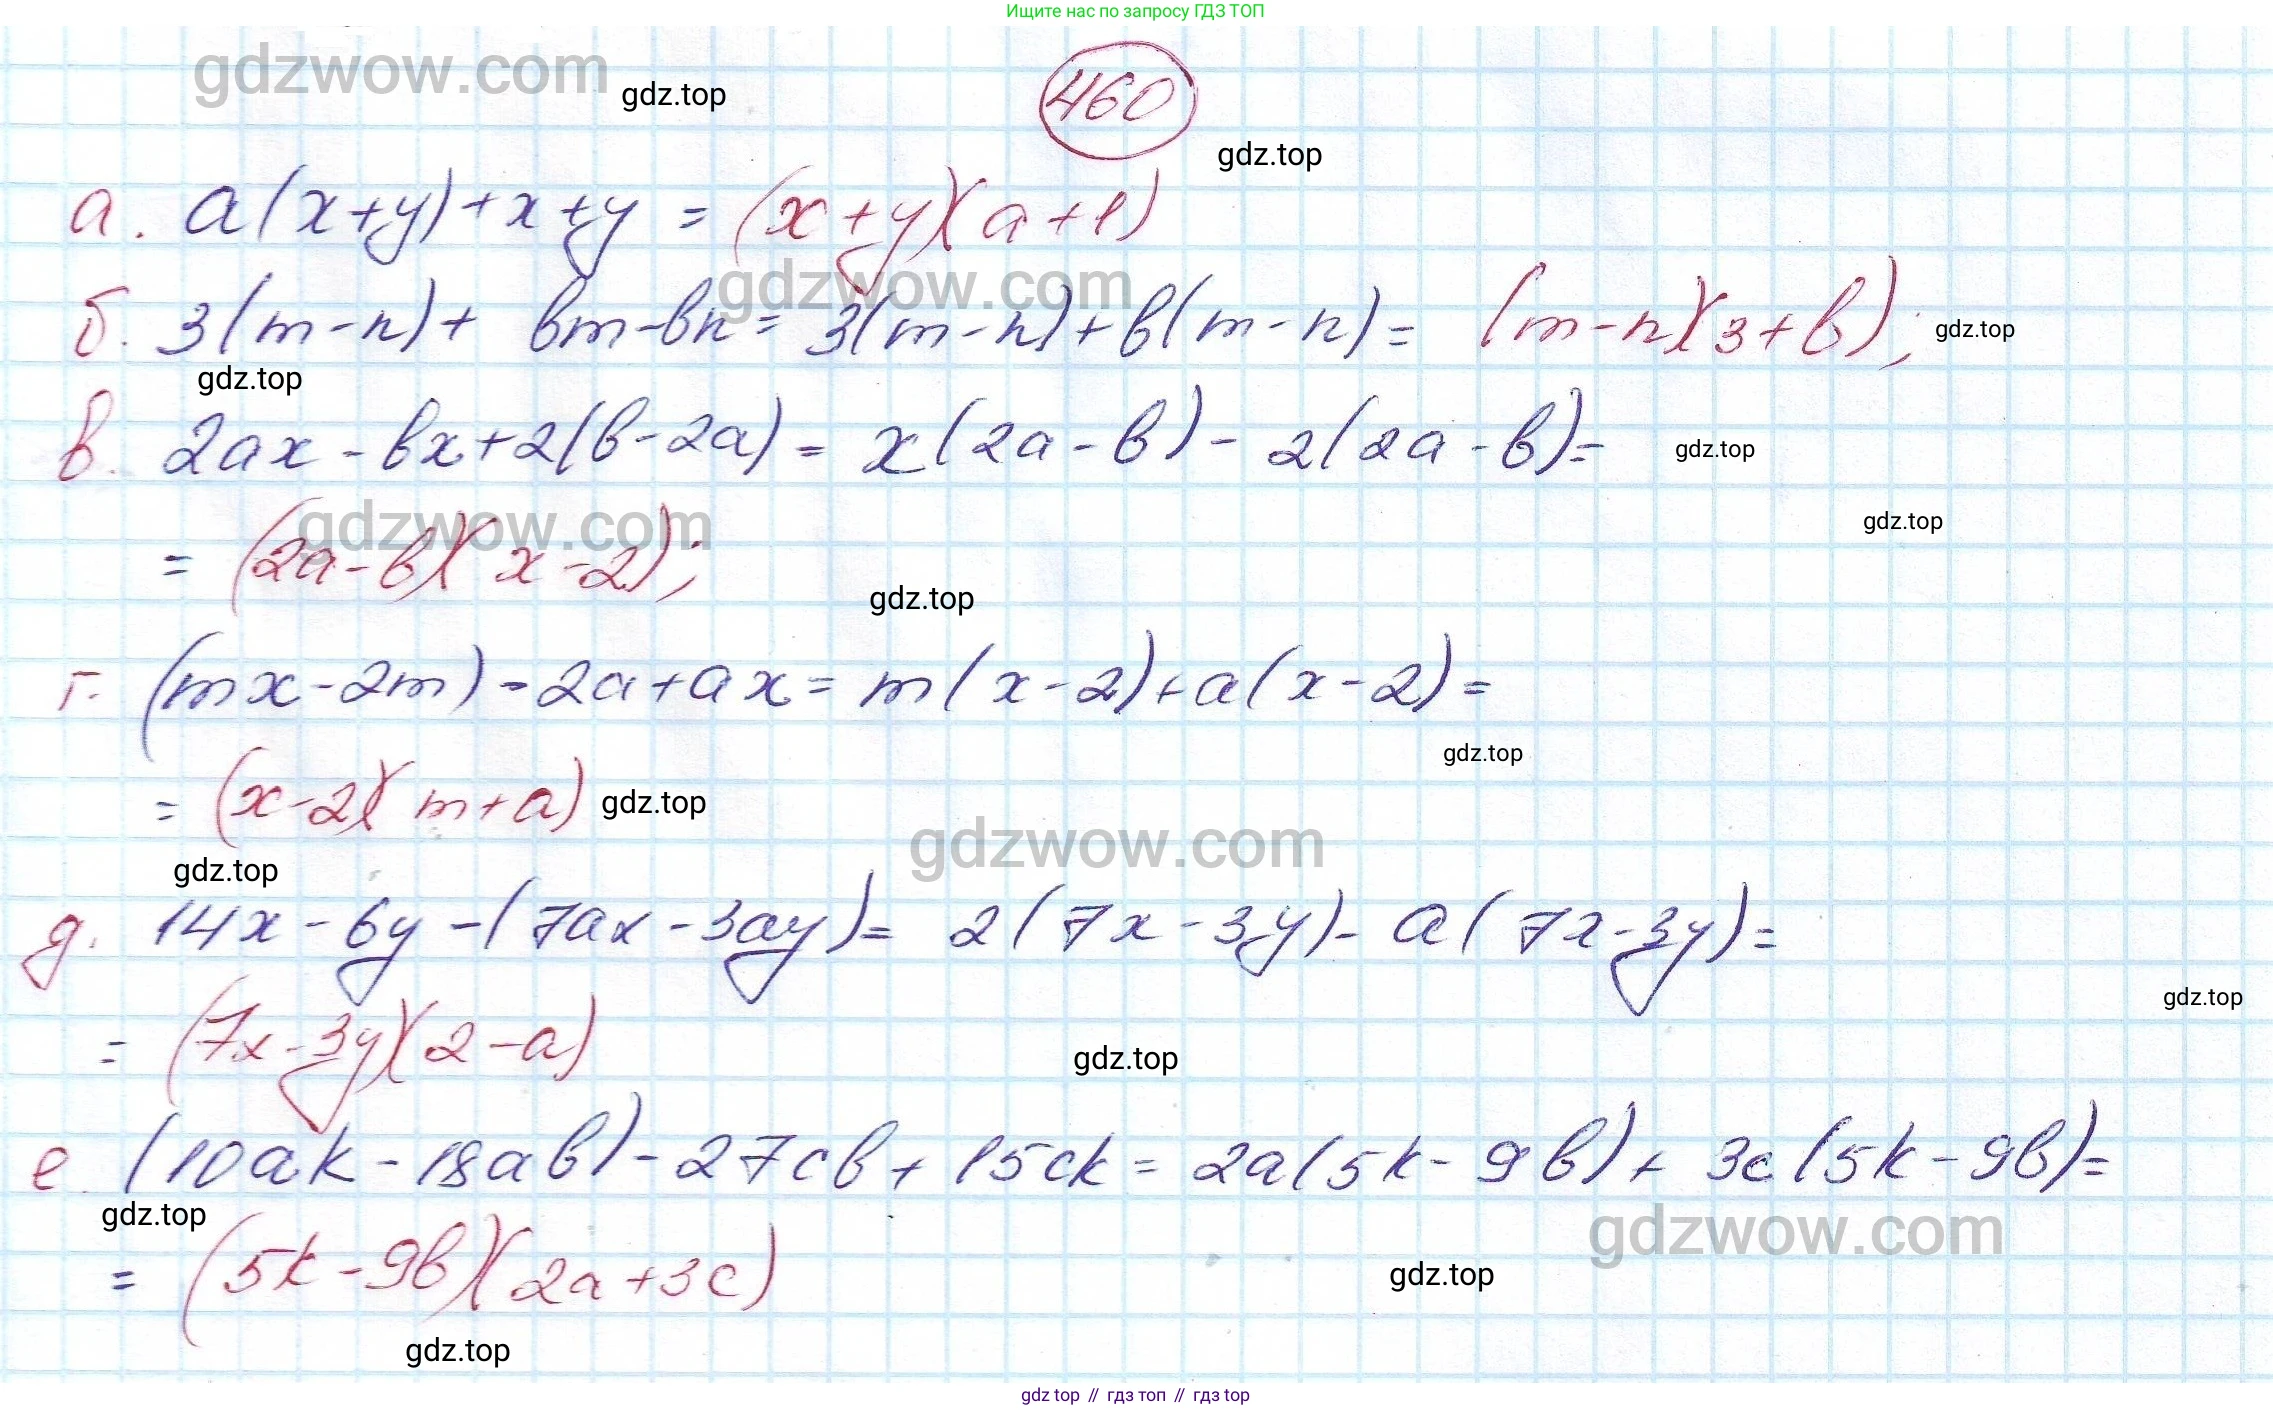 Ищите нас по запросу ГДЗ ТОП
gdzwow.com
gdz.top
460
gdz.top
а. a(x+y)+x+y = (x+y)(a+1)
gdzwow.com
б. 3(m-n)+ bm-bn = 3(m-n)+b(m-n)= (m-n)(3+b);
gdz.top
gdz.top
в. 2ax-bx+2(b-2a)= x(2a-b)-2(2a-b)=
gdz.top
gdzwow.com
gdz.top
= (2a-b)(x-2);
gdz.top
г. (mx-2m)-2a+ax= m(x-2)+a(x-2)=
gdz.top
= (x-2)(m+a)
gdz.top
gdzwow.com
gdz.top
д. 14x-6y-(7ax-3ay)= 2(7x-3y)-a(7x-3y)=
gdz.top
= (7x-3y)(2-a)
gdz.top
е. (10ak-18ab)-27cb+15ck= 2a(5k-9b)+3c(5k-9b)=
gdz.top
gdzwow.com
= (5k-9b)(2a+3c)
gdz.top
gdz.top
gdz top // гдз топ // гдз top